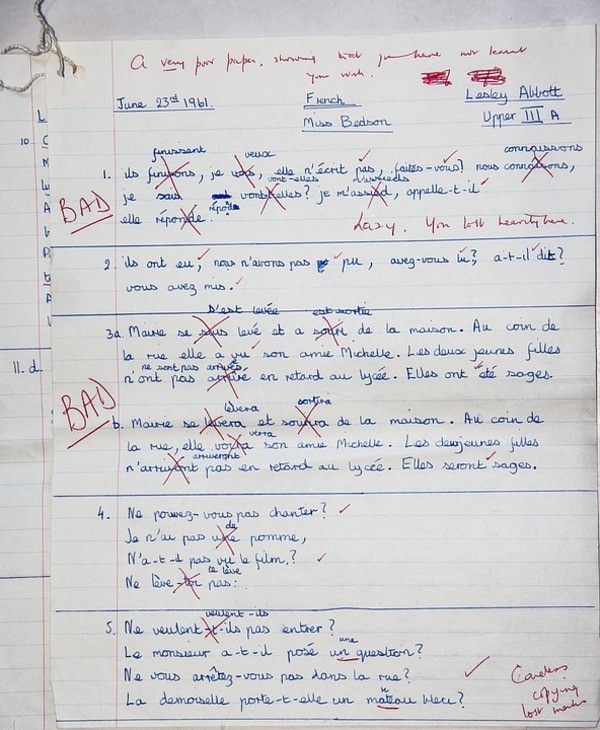 A very poor paper, showing that you have not learnt
your work.
June 23rd 1961. French Lesley Abbott
Miss Bedson Upper III A
finissent veux connaissons
1. ils finissons, je vois, elle n'écrit pas, faites-vous? nous connaisons,
vont-elles m'assieds
BAD je sais vont-elles? je m'assied, appelle-t-il
répond
elle réponde.
Lazy. You lost heavily here.
2. ils ont eu, nous n'avons pas pu, avez-vous lu? a-t-il dit?
vous avez mis.
s'est levée est sortie
3a. Marie se suis levé et a sortie de la maison. Au coin de
la rue elle a vu son amie Michelle. Les deux jeunes filles
ne sont pas arrivés
n'ont pas arrivé en retard au lycée. Elles ont été sages.
BAD
lèvera sortira
b. Marie se levera et sortira de la maison. Au coin de
verra
la rue, elle voira son amie Michelle. Les deux jeunes filles
arriveront
n'arrivont pas en retard au lycée. Elles seront sages.
de
4. Ne pouvez-vous pas chanter?
Je n'ai pas une pomme,
N'a-t-il pas vu le film?
te lève
Ne lève-toi pas.
veulent-ils
5. Ne veulent-t-ils pas entrer?
une
Le monsieur a-t-il posé un question?
Ne vous arrêtez-vous pas dans la rue?
La demoiselle porte-t-elle un mateau bleu?
Careless
copying
lost marks
10
11. d.